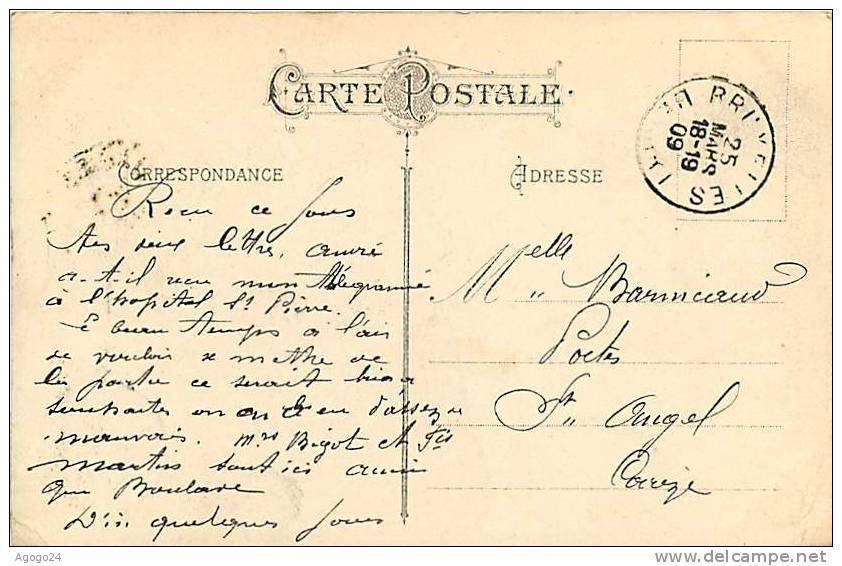 CARTE POSTALE
CORRESPONDANCE
ADRESSE
BRUXELLES
25
MARS
18-19
09
Recu ce jour
tes deux lettre, André
a-t-il recu mon télégramme
à l'hopital St Pierre.
beau temps a l'air
de vouloir se mettre de
la partie ce serait bien a
souhaiter on en a eu d'assez
mauvais. Mrs Bigot et Fis
Martin sont ici ainsi
que Boulare
D'ici quelques jours
Melle Barmicaud
Postes
St Angel
Corrèze
Agogo24
delcampe.net